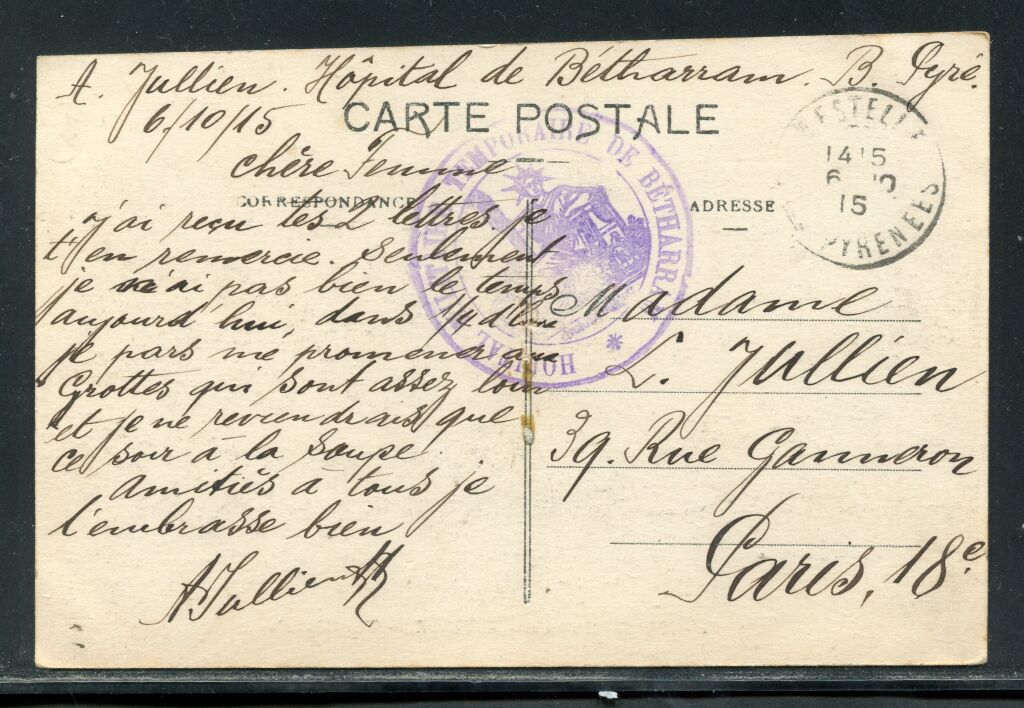 A. Jullien. Hôpital de Bétharram. B. Pyré.
6/10/15
CARTE POSTALE
chère Femme
CORRESPONDANCE
j'ai reçu tes 2 lettres, je
t'en remercie. Seulement
je n'ai pas bien le temps
aujourd'hui, dans 1/4 d'heure
je pars me promener aux
Grottes qui sont assez loin
et je ne reviendrais que
ce soir à la soupe.
Amitiés à tous je
t'embrasse bien
A Jullien
HOPITAL TEMPORAIRE DE BÉTHARRAM *
ADRESSE
Madame
L. Jullien
39. Rue Ganneron
Paris, 18e
LESTELLE
14 15
6 10
15
PYRENEES